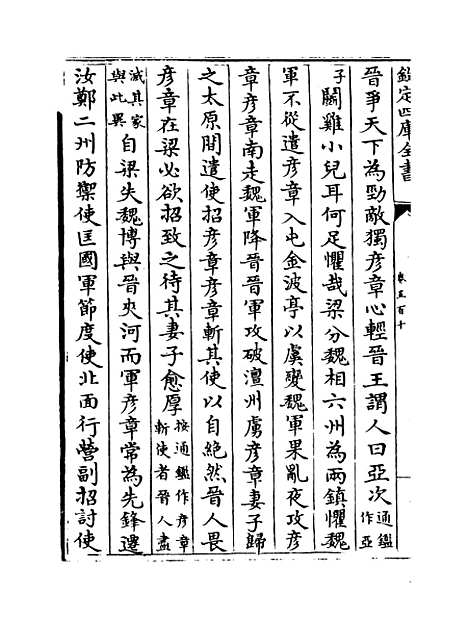 欽定四庫全書
卷五百十
晉爭天下為勁敵獨彥章心輕晉王謂人曰亞次通鑑作亞
子鬭雞小兒耳何足懼哉梁分魏相六州為兩鎮懼魏
軍不從遣彥章入屯金波亭以虞變魏軍果亂夜攻彥
章彥章南走魏軍降晉晉軍攻破澶州虜彥章妻子歸
之太原間遣使招彥章彥章斬其使以自絶然晉人畏
彥章在梁必欲招致之待其妻子愈厚按通鑑作彥章斬使者晉人盡
滅其家與此異自梁失魏博與晉夾河而軍彥章常為先鋒遷
汝鄭二州防禦使匡國軍節度使北面行營副招討使